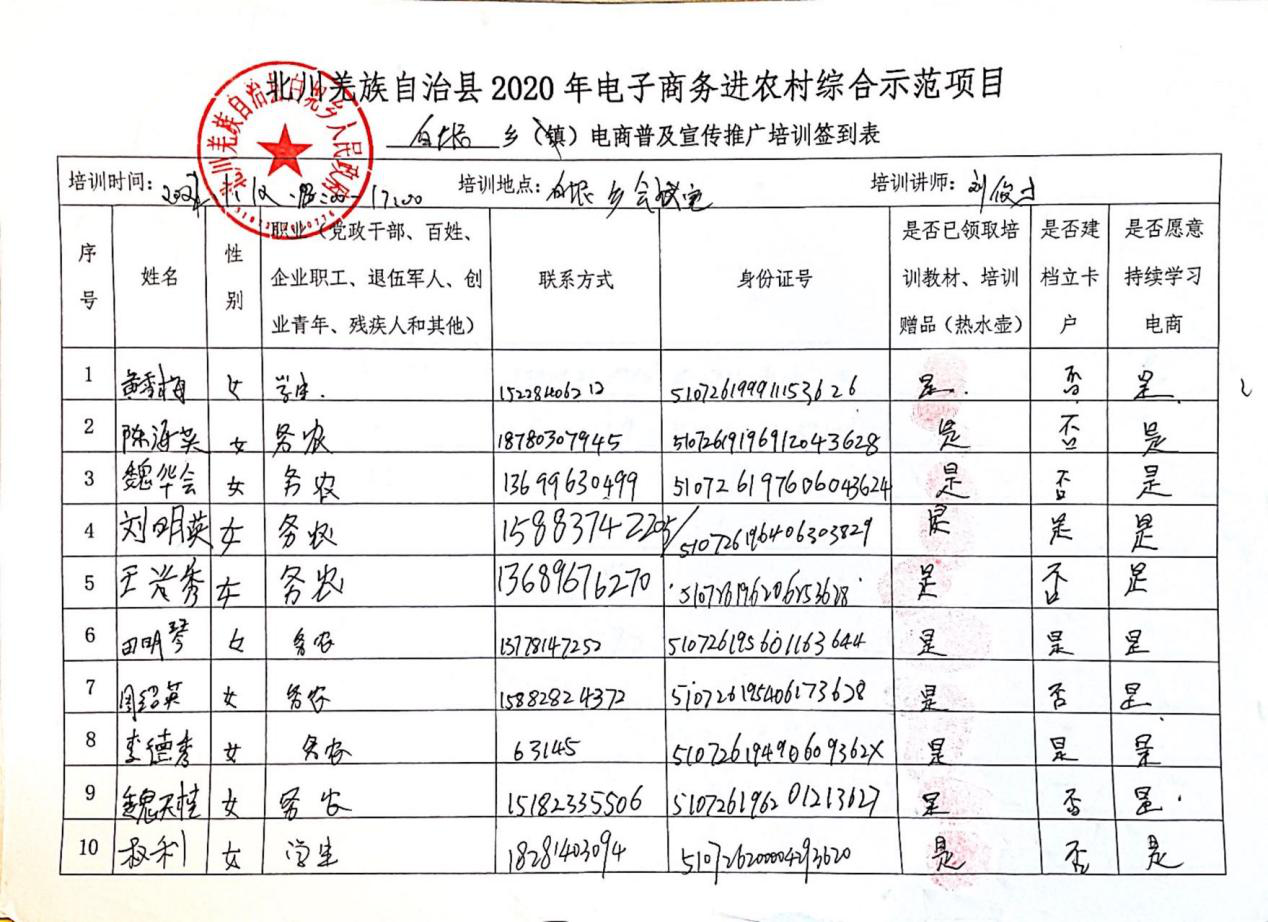 北川羌族自治县2020年电子商务进农村综合示范项目
乡（镇）电商普及宣传推广培训签到表
培训时间： 17:00 培训地点： 乡会议室 培训讲师：刘俊
序号 姓名 性别 职业（党政干部、百姓、企业职工、退伍军人、创业青年、残疾人和其他） 联系方式 身份证号 是否已领取培训教材、培训赠品（热水壶） 是否建档立卡户 是否愿意持续学习电商
1 女 学生. 15228406212 510726199911153626 是. 否 是
2 陈海英 女 务农 18780307945 51072619196912043628 是 否 是
3 魏华会 女 务农 13699630499 510726197606043624 是 否 是
4 刘明英 女 务农 15883742205 510726196406303829 是 是 是
5 王兴秀 女 务农 13689676270 是 否 是
6 田明琴 女 务农 13778147252 510726195601163644 是 是 是
7 周绍英 女 务农 15882824372 510726195406173628 是 否 是
8 李德秀 女 务农 63145 51072619490609362X 是 是 是
9 魏天桂 女 务农 15182335506 510726196201213627 是 否 是
10 女 学生 18281403094 510726200004293620 是 否 是